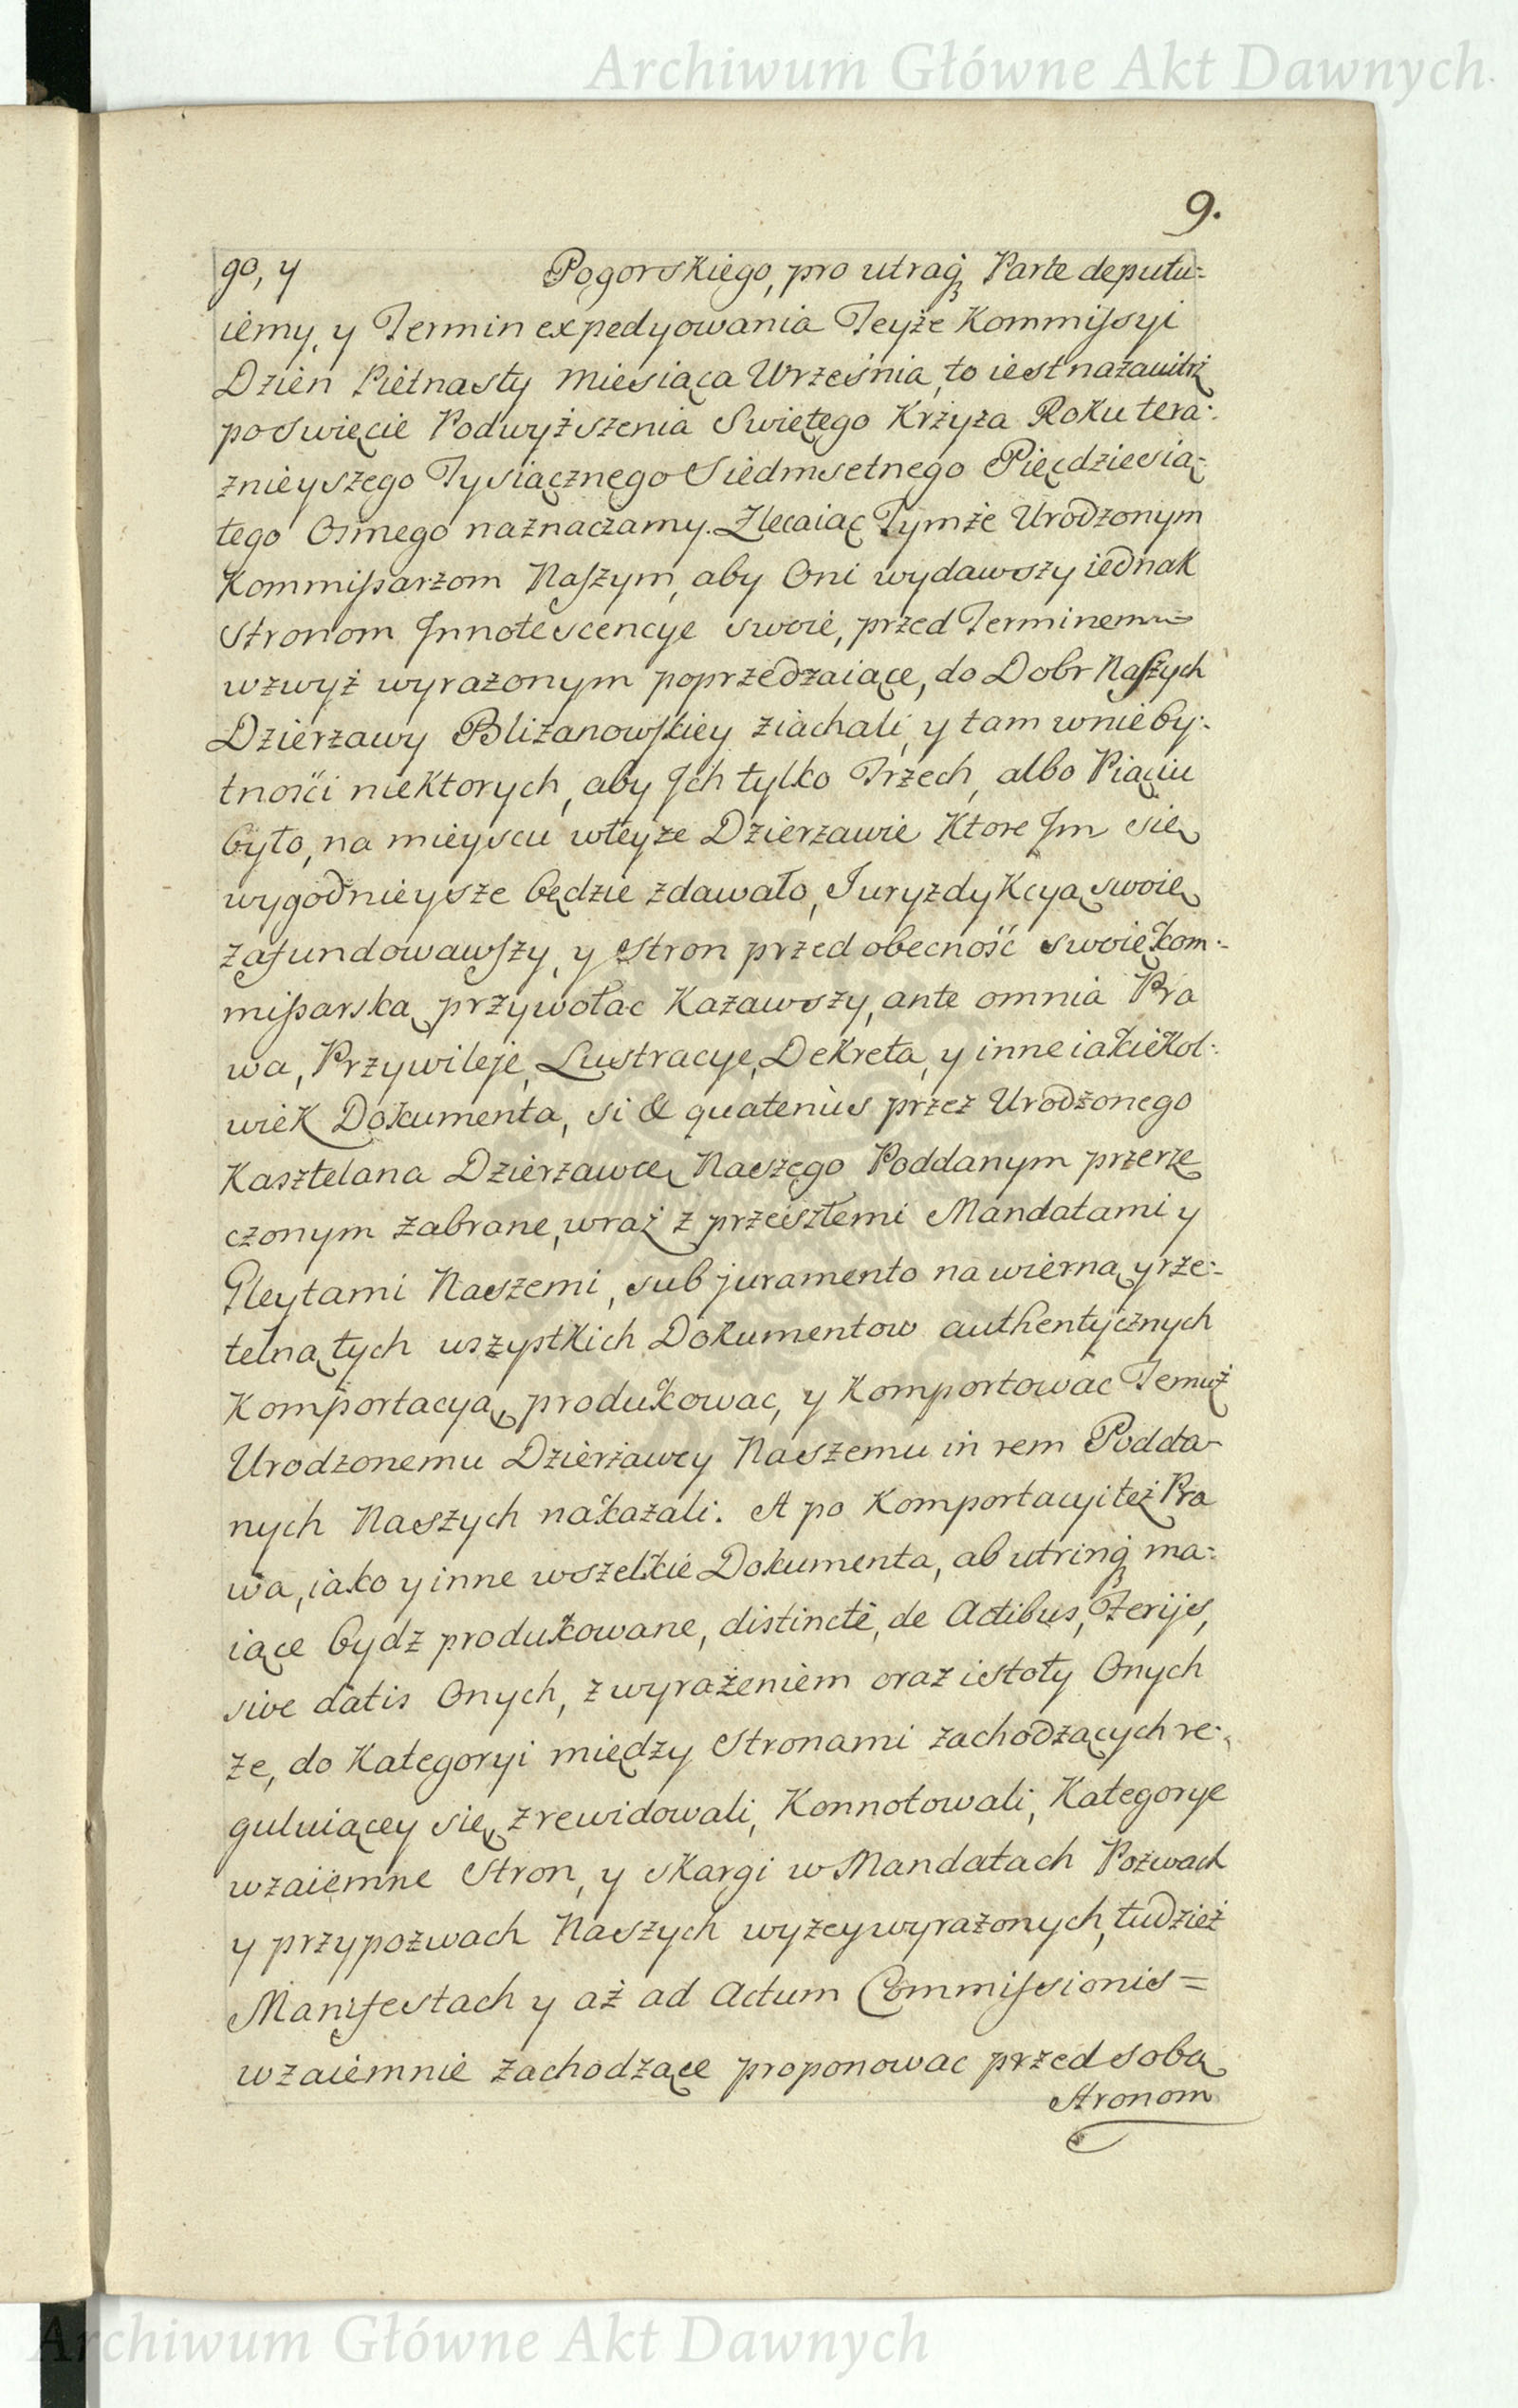 Archiwum Główne Akt Dawnych
9.
go, y Pogorskiego, pro utraq₃ Parte deputu=
iemy, y Termin expedyowania Teyże Kommissyi
Dzien Pietnasty Miesiąca Września, to iest nazaiutrz
po Swięcie Podwyższenia Swiętego Krzyża Roku tera=
znieyszego Tysiącznego Siedmsetnego Pięcdziesią=
tego Osmego naznaczamy. Zlecaiąc Tymże Urodzonym
Kommissarzom Naszym, aby Oni wydawszy iednak
Stronom Innotescencye swoie, przed Terminem =
wzwyż wyrażonym poprzedzaiące, do Dobr Naszych
Dzierzawy Blizanowskiey ziachali, y tam w nieby=
tności niektorych, aby Ich tylko Trzech, albo Piąciu
było, na mieyscu wteyże Dzierzawie Ktore Im się
wygodnieysze będzie zdawało, Juryzdykcyą swoię
zafundowawszy, y Stron przed obecność swoię kom=
missarską przywołac Kazawszy, ante omnia Pra
wa, Przywileje, Lustracye, Dekreta, y inne iakiekol=
wiek Dokumenta, si & quatenùs przez Urodzonego
Kasztelana Dzierzawcę Naszego Poddanym przerze
czonym zabrane, wraz z przeiszłemi Mandatami y
Gleytami Naszemi, sub juramento na wierną y rze=
telną tych wszystkich Dokumentow authentycznych
Komportacyą, produkowac, y Komportowac Temuż
Urodzonemu Dzierżawcy Naszemu in rem Podda-
nych Naszych nakazali. A po Komportacyi też Pra
wa, iako y inne wszelkie Dokumenta, ab utrinq₃ ma=
iące bydz produkowane, distinctè, de Actibus, Ferijs,
sive datis Onych, z wyrażeniem oraz istoty Onych
że, do Kategoryi między Stronami zachodzących re=
guluiącey się, zrewidowali, Konnotowali, Kategorye
wzaiemne Stron, y skargi w Mandatach Pozwach
y przypozwach Naszych wyżey wyrażonych, tudzież
Manifestach y aż ad Actum Commissionis =
wzaiemnie zachodzące proponowac przed sobą
Stronom
Archiwum Główne Akt Dawnych